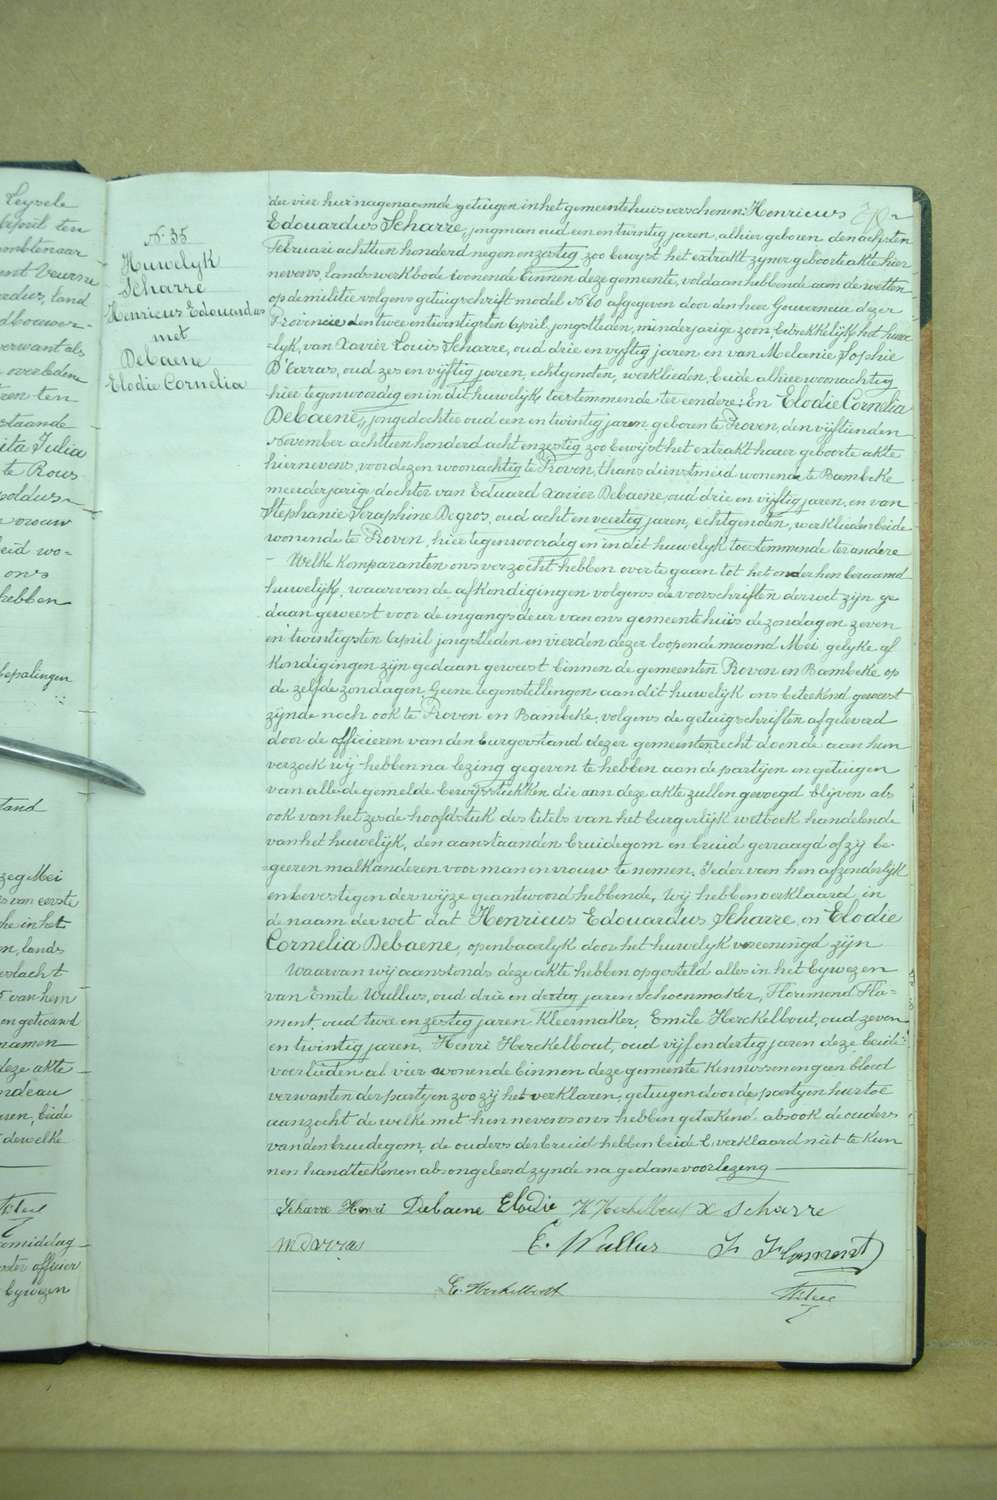 Leysele
April ten
ita Julia
te Rous
poldus
vrouw
heid wo=
ons
hebben
bepalingen
stand
zeg Mei
van eerste
he in het
en, lands
geslacht
van hem
en getuand
namen
deze akte
ndeau
aren, beide
dewelke
namiddag
officier
bywezen
N. 35
Huwelyk
Scharre
Henricus Edouardus
met
Debaene
Elodie Cornelia
der vier hierna genaemde getuigen in het gemeentehuis verschenen Henricus
Edouardus Scharre, jongman oud een en twintig jaren, alhier geboren den achtsten
Februari achttien honderd negen en zestig zoo bewyst het extrakt zyner geboorte akte hier
nevens, landswerkbode wonende binnen deze gemeente, voldaan hebbende aan de wetten
op de militie volgens getuigschrift model N 10 afgegeven door den heer Gouverneur dezer
Provincie den twee en twintigsten April jongstleden, minderjarige zoon betrekkelijk het huwe
=lyk, van Xavier Louis Scharre, oud drie en vyftig jaren en van Melanie Sophie
D'Arras, oud zes en vijftig jaren, echtgenoten, werklieden, beide alhier woonachtig
hier tegenwoordig en in dit huwelijk toestemmende ter eendere; En Elodie Cornelia
Debaene, jongedochter oud een en twintig jaren geboren te Proven, den vijftienden
November achttien honderd acht en zestig zoo bewijst het extrakt haer geboorte akte
hiernevens, voordezen woonachtig te Proven, thans dienstmeid wonende te Bambeke
meerderjarige dochter van Eduard Xavier Debaene oud drie en vijftig jaren, en van
Stephanie Seraphine Degros, oud acht en veertig jaren, echtgenoten, werklieden beide
wonende te Proven, hier tegenwoordig en in dit huwelyk toestemmende ter andere
Welke komparanten ons verzocht hebben over te gaan tot het onder hen beraamd
huwelijk, waarvan de afkondigingen volgens de voorschriften der wet zijn ge
daan geweest voor de ingangsdeur van ons gemeentehuis de zondagen zeven
en twintigsten April jongstleden en vierden dezer loopende maand Mei gelyke af
kondigingen zijn gedaan geweest binnen de gemeenten Proven en Bambeke op
de zelfde zondagen. Geene tegenstellingen aan dit huwelyk ons beteekend geweest
zijnde noch ook te Proven en Bambeke, volgens de getuigschriften afgeleverd
door de officieren van den burgerstand dezer gemeenten recht doende aan hun
verzoek wij hebben na lezing gegeven te hebben aan de partijen en getuigen
van alle de gemelde bewysstukken die aan deze akte zullen gevoegd blijven als
ook van het zesde hoofdstuk des titels van het burgerlijk wetboek handelende
van het huwelijk, den aanstaanden bruidegom en bruid gevraagd of zij be
=geeren malkanderen voor man en vrouw te nemen. Ieder van hen afzonderlijk
en bevestigender wijze geantwoord hebbende, wij hebben verklaard in
de naam der wet dat Henricus Edouardus Scharre en Elodie
Cornelia Debaene, openbaarlyk door het huwelyk vereenigd zijn
Waarvan wij aanstonds deze akte hebben opgesteld alles in het bywezen
van Emile Wullus, oud drie en dertig jaren Schoenmaker, Florimond Fla=
ment, oud twee en zestig jaren Kleermaker, Emile Herckelbout, oud zeven
en twintig jaren, Henri Herckelbout, oud vijf en dertig jaren deze beide
voerlieden al vier wonende binnen deze gemeente kennissen en geen bloed
verwanten der partyen zoo zij het verklaren, getuigen door de partyen hiertoe
aanzocht de welke met hen nevens ons hebben geteekend alsook de ouders
van den bruidegom, de ouders der bruid hebben beide verklaard niet te kun
nen handteekenen als ongeleerd zynde na gedane voorlezing
Scharre Henri Debaene Elodie H Herkelbout X Scharre
E. Wullus F Flament
E. Herkelbout